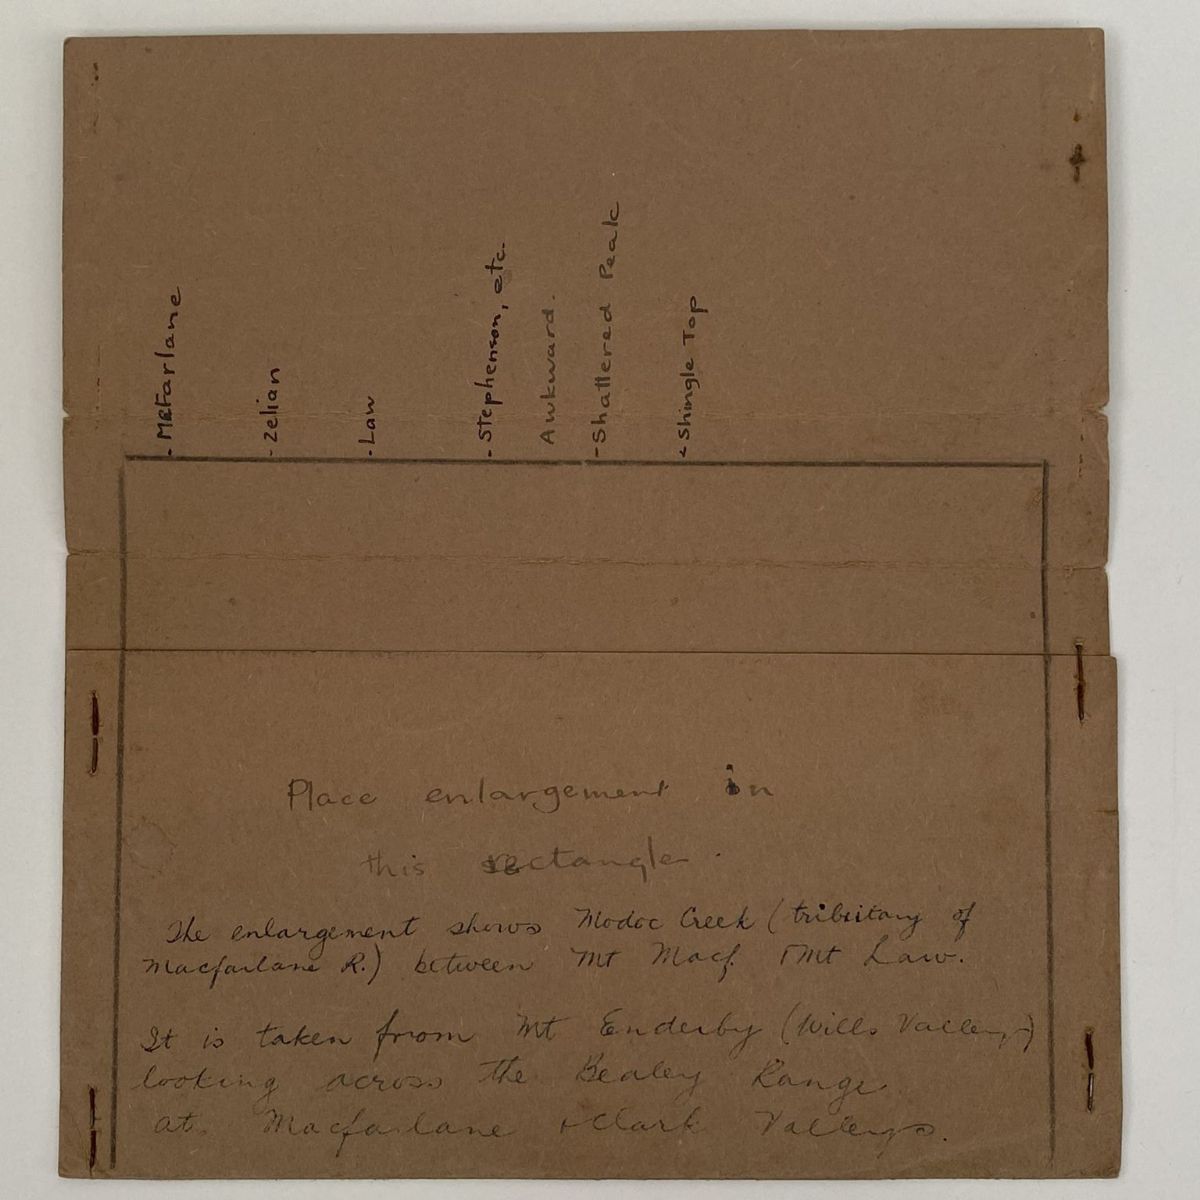 - McFarlane
- Zelian
- Law
- Stephenson, etc.
Awkward.
- Shattered Peak
- Shingle Top
Place enlargement in
this rectangle.
The enlargement shows Modoc Creek (tributary of
Macfarlane R.) between Mt Macf. + Mt Law.
It is taken from Mt Enderby (Wills Valley)
looking across the Bealey Range
at Macfarlane + Clark Valleys.